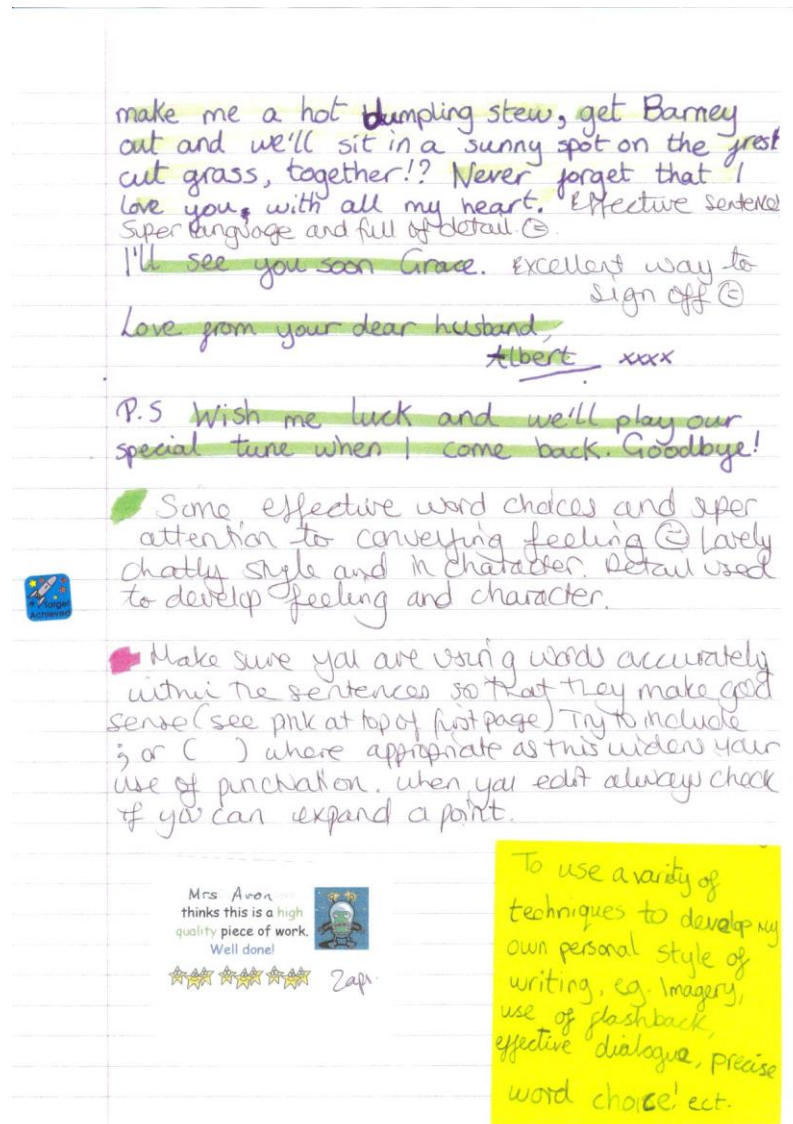 make me a hot dumpling stew, get Barney
out and we'll sit in a sunny spot on the frest
cut grass, together!? Never forget that I
love you, with all my heart. Effective sentence
Super language and full of detail.
I'll see you soon Grace. Excellent way to
sign off
Love from your dear husband,
Albert xxxx
P.S Wish me luck and we'll play our
special tune when I come back. Goodbye!
Some effective word choices and super
attention to conveying feeling Lovely
chatty style and in character. Detail used
to develop feeling and character.
Target
Achieved
Make sure you are using words accurately
within the sentences so that they make good
sense (see pink at top of first page) Try to include
; or ( ) where appropriate as this widens your
use of punctuation. When you edit always check
if you can expand a point.
Mrs Avon
thinks this is a high
quality piece of work.
Well done!
2api
To use a varity of
techniques to develop my
own personal style of
writing, eg. Imagery,
use of flashback,
effective dialogue, precise
word choice! ect.